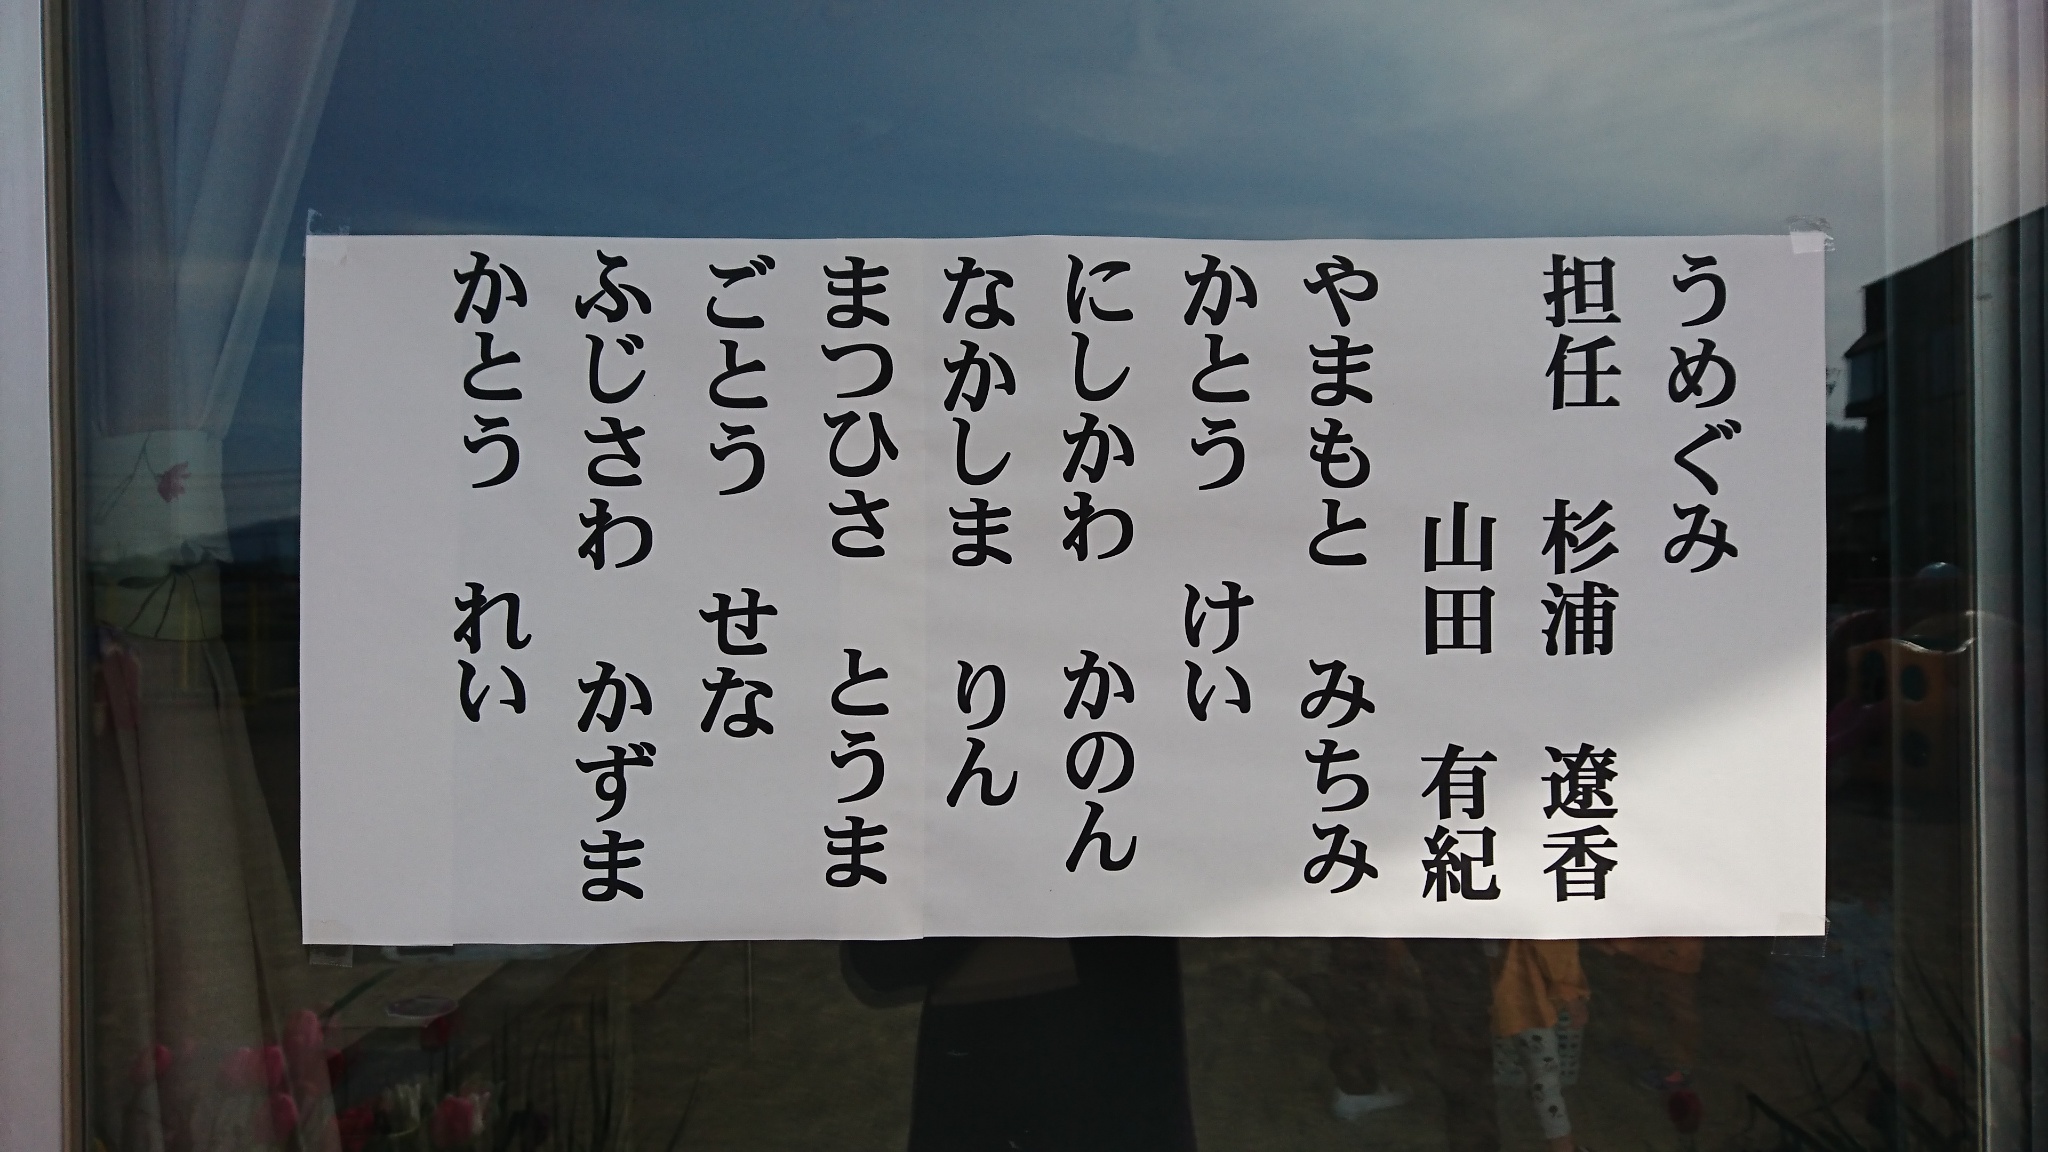 うめぐみ
担任　杉浦　遼香
山田　有紀
やまもと　みちみ
かとう　けい
にしかわ　かのん
なかしま　りん
まつひさ　とうま
ごとう　せな
ふじさわ　かずま
かとう　れい